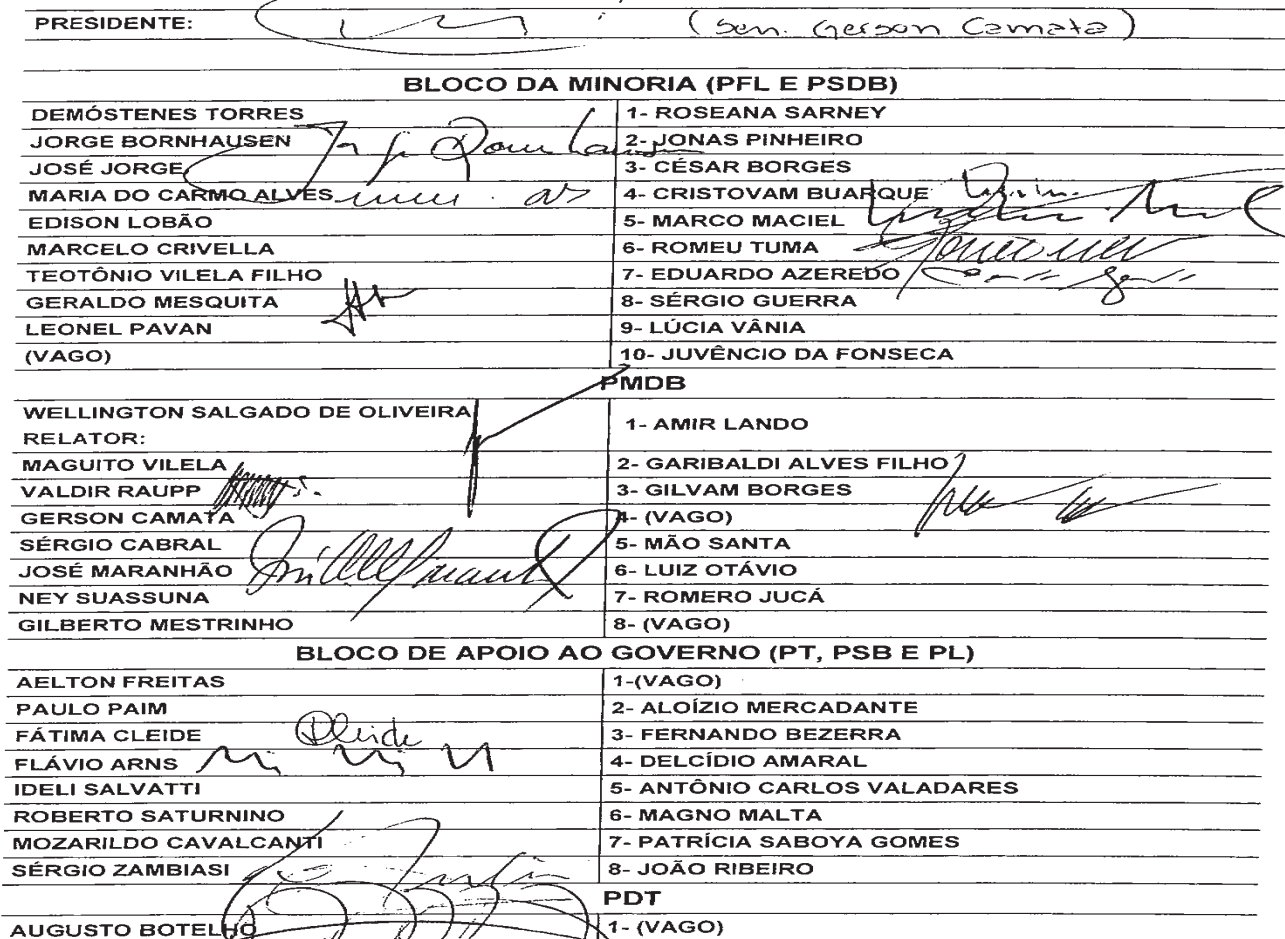 PRESIDENTE: (Sen. Gerson Camata)
BLOCO DA MINORIA (PFL E PSDB)
DEMÓSTENES TORRES 1- ROSEANA SARNEY
JORGE BORNHAUSEN 2- JONAS PINHEIRO
JOSÉ JORGE 3- CÉSAR BORGES
MARIA DO CARMO ALVES 4- CRISTOVAM BUARQUE
EDISON LOBÃO 5- MARCO MACIEL
MARCELO CRIVELLA 6- ROMEU TUMA
TEOTÔNIO VILELA FILHO 7- EDUARDO AZEREDO
GERALDO MESQUITA 8- SÉRGIO GUERRA
LEONEL PAVAN 9- LÚCIA VÂNIA
(VAGO) 10- JUVÊNCIO DA FONSECA
PMDB
WELLINGTON SALGADO DE OLIVEIRA
RELATOR: 1- AMIR LANDO
MAGUITO VILELA 2- GARIBALDI ALVES FILHO
VALDIR RAUPP 3- GILVAM BORGES
GERSON CAMATA 4- (VAGO)
SÉRGIO CABRAL 5- MÃO SANTA
JOSÉ MARANHÃO 6- LUIZ OTÁVIO
NEY SUASSUNA 7- ROMERO JUCÁ
GILBERTO MESTRINHO 8- (VAGO)
BLOCO DE APOIO AO GOVERNO (PT, PSB E PL)
AELTON FREITAS 1-(VAGO)
PAULO PAIM 2- ALOÍZIO MERCADANTE
FÁTIMA CLEIDE Cleide 3- FERNANDO BEZERRA
FLÁVIO ARNS 4- DELCÍDIO AMARAL
IDELI SALVATTI 5- ANTÔNIO CARLOS VALADARES
ROBERTO SATURNINO 6- MAGNO MALTA
MOZARILDO CAVALCANTI 7- PATRÍCIA SABOYA GOMES
SÉRGIO ZAMBIASI 8- JOÃO RIBEIRO
PDT
AUGUSTO BOTELHO 1- (VAGO)